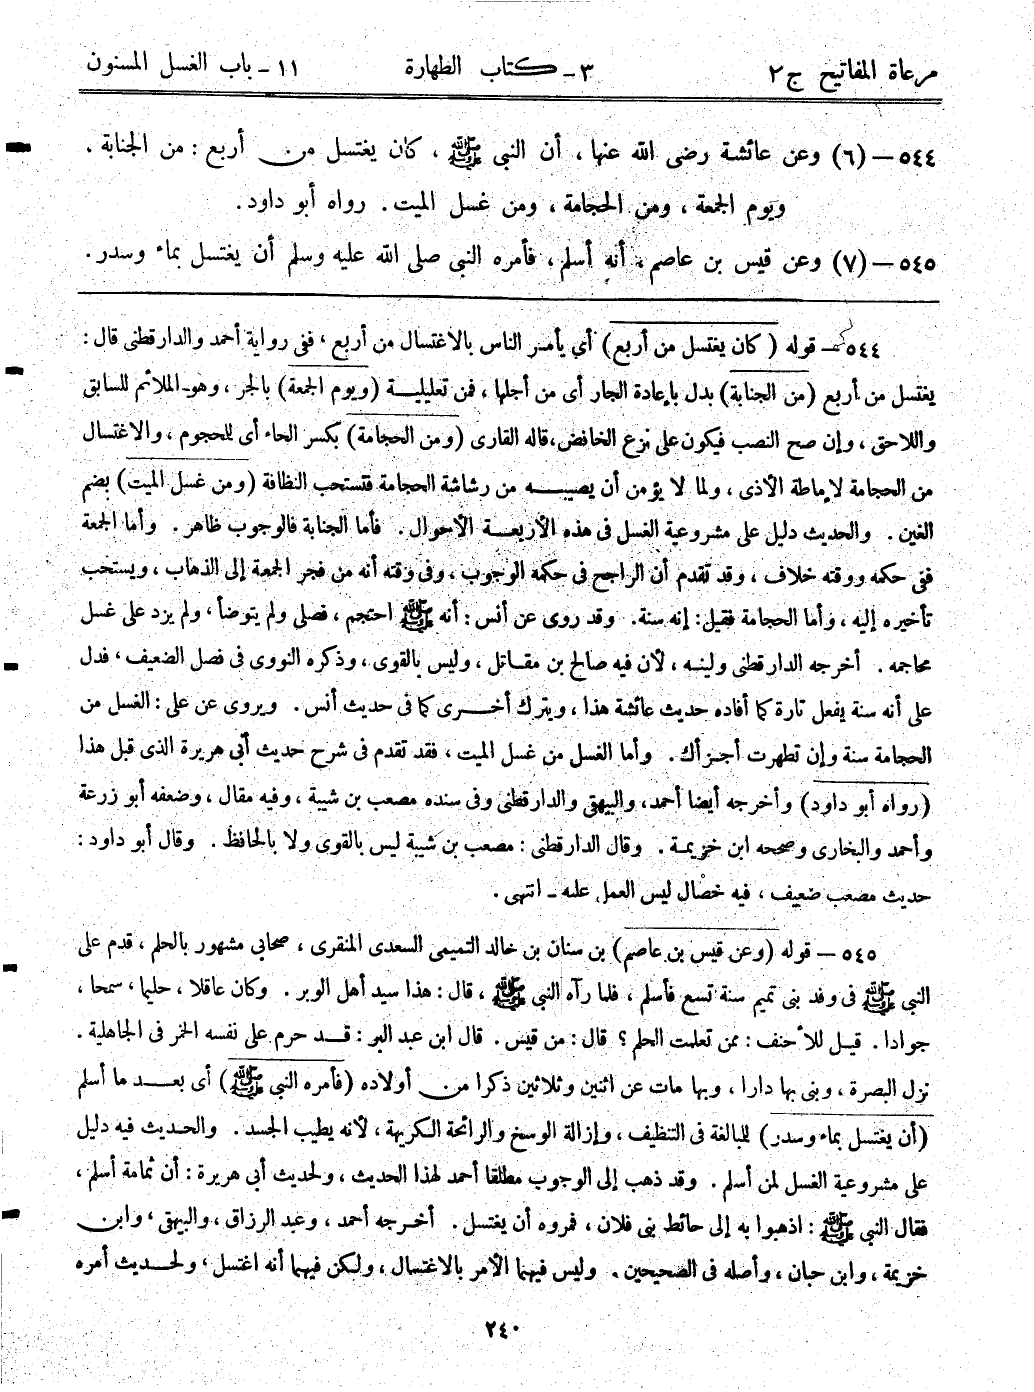 مرعاة المفاتيح ج٢ ٣ـ كتاب الطهارة ١١ـ باب الغسل المسنون
٥٤٤ – (٦) وعن عائشة رضى الله عنها، أن النبي ﷺ، كان يغتسل من أربع: من الجنابة.
ويوم الجمعة، ومن الحجامة، ومن غسل الميت. رواه أبو داود.
٥٤٥ – (٧) وعن قيس بن عاصم، أنه أسلم، فأمره النبى صلى الله عليه وسلم أن يغتسل بماء وسدر.
٥٤٤ – قوله (كان يغتسل من أربع) أي يأمر الناس بالاغتسال من أربع، ففى رواية أحمد والدارقطنى قال:
يغتسل من أربع (من الجنابة) بدل بإعادة الجار أى من أجلها، فمن تعليلية (ويوم الجمعة) بالجر، وهو الملائم للسابق
واللاحق، وإن صح النصب فيكون على نزع الخافض، قاله القارى (ومن الحجامة) بكسر الحاء أى للحجوم، والاغتسال
من الحجامة لإماطة الأذى، ولما لا يؤمن أن يصيبه من رشاشة الحجامة فتستحب النظافة (ومن غسل الميت) بضم
الغين. والحديث دليل على مشروعية الغسل فى هذه الأربعة الأحوال. فأما الجنابة فالوجوب ظاهر. وأما الجمعة
ففى حكمه ووقته خلاف، وقد تقدم أن الراجح فى حكمه الوجوب، وفى وقته أنه من فجر الجمعة إلى الذهاب، ويستحب
تأخيره إليه، وأما الحجامة فقيل: إنه سنة. وقد روى عن أنس: أنه ﷺ احتجم، فصلى ولم يتوضأ، ولم يزد على غسل
محاجمه. أخرجه الدارقطنى ولينه، لأن فيه صالح بن مقاتل، وليس بالقوى، وذكره النووى فى فصل الضعيف، فدل
على أنه سنة يفعل تارة كما أفاده حديث عائشة هذا، ويترك أخرى كما فى حديث أنس. ويروى عن على: الغسل من
الحجامة سنة وإن تطهرت أجزأك. وأما الغسل من غسل الميت، فقد تقدم فى شرح حديث أبي هريرة الذى قبل هذا
(رواه أبو داود) وأخرجه أيضا أحمد، والبيهقى والدارقطنى وفى سنده مصعب بن شيبة، وفيه مقال، وضعفه أبو زرعة
وأحمد والبخارى وصححه ابن خزيمة. وقال الدارقطنى: مصعب بن شيبة ليس بالقوى ولا بالحافظ. وقال أبو داود:
حديث مصعب ضعيف، فيه خصال ليس العمل عليه ـ انتهى.
٥٤٥ – قوله (وعن قيس بن عاصم) بن سنان بن خالد التميمى السعدى المنقرى، صحابي مشهور بالحلم، قدم على
النبي ﷺ فى وفد بنى تميم سنة تسع فأسلم، فلما رآه النبي ﷺ، قال: هذا سيد أهل الوبر. وكان عاقلا، حليما، سمحا،
جوادا. قيل للأحنف: ممن تعلمت الحلم؟ قال: من قيس. قال ابن عبد البر: قد حرم على نفسه الخمر فى الجاهلية.
نزل البصرة، وبنى بها دارا، وبها مات عن اثنين وثلاثين ذكرا من أولاده (فأمره النبي ﷺ) أى بعد ما أسلم
(أن يغتسل بماء وسدر) للبالغة فى التنظيف، وإزالة الوسخ والرائحة الكريهة، لأنه يطيب الجسد. والحديث فيه دليل
على مشروعية الغسل لمن أسلم. وقد ذهب إلى الوجوب مطلقا أحمد لهذا الحديث، ولحديث أبي هريرة: أن ثمامة أسلم،
فقال النبي ﷺ: اذهبوا به إلى حائط بنى فلان، فمروه أن يغتسل. أخرجه أحمد، وعبد الرزاق، والبيهقى، وابن
خزيمة، وابن حبان، وأصله فى الصحيحين. وليس فيهما الأمر بالاغتسال، ولكن فيهما أنه اغتسل، ولحديث أمره
٢٤٠